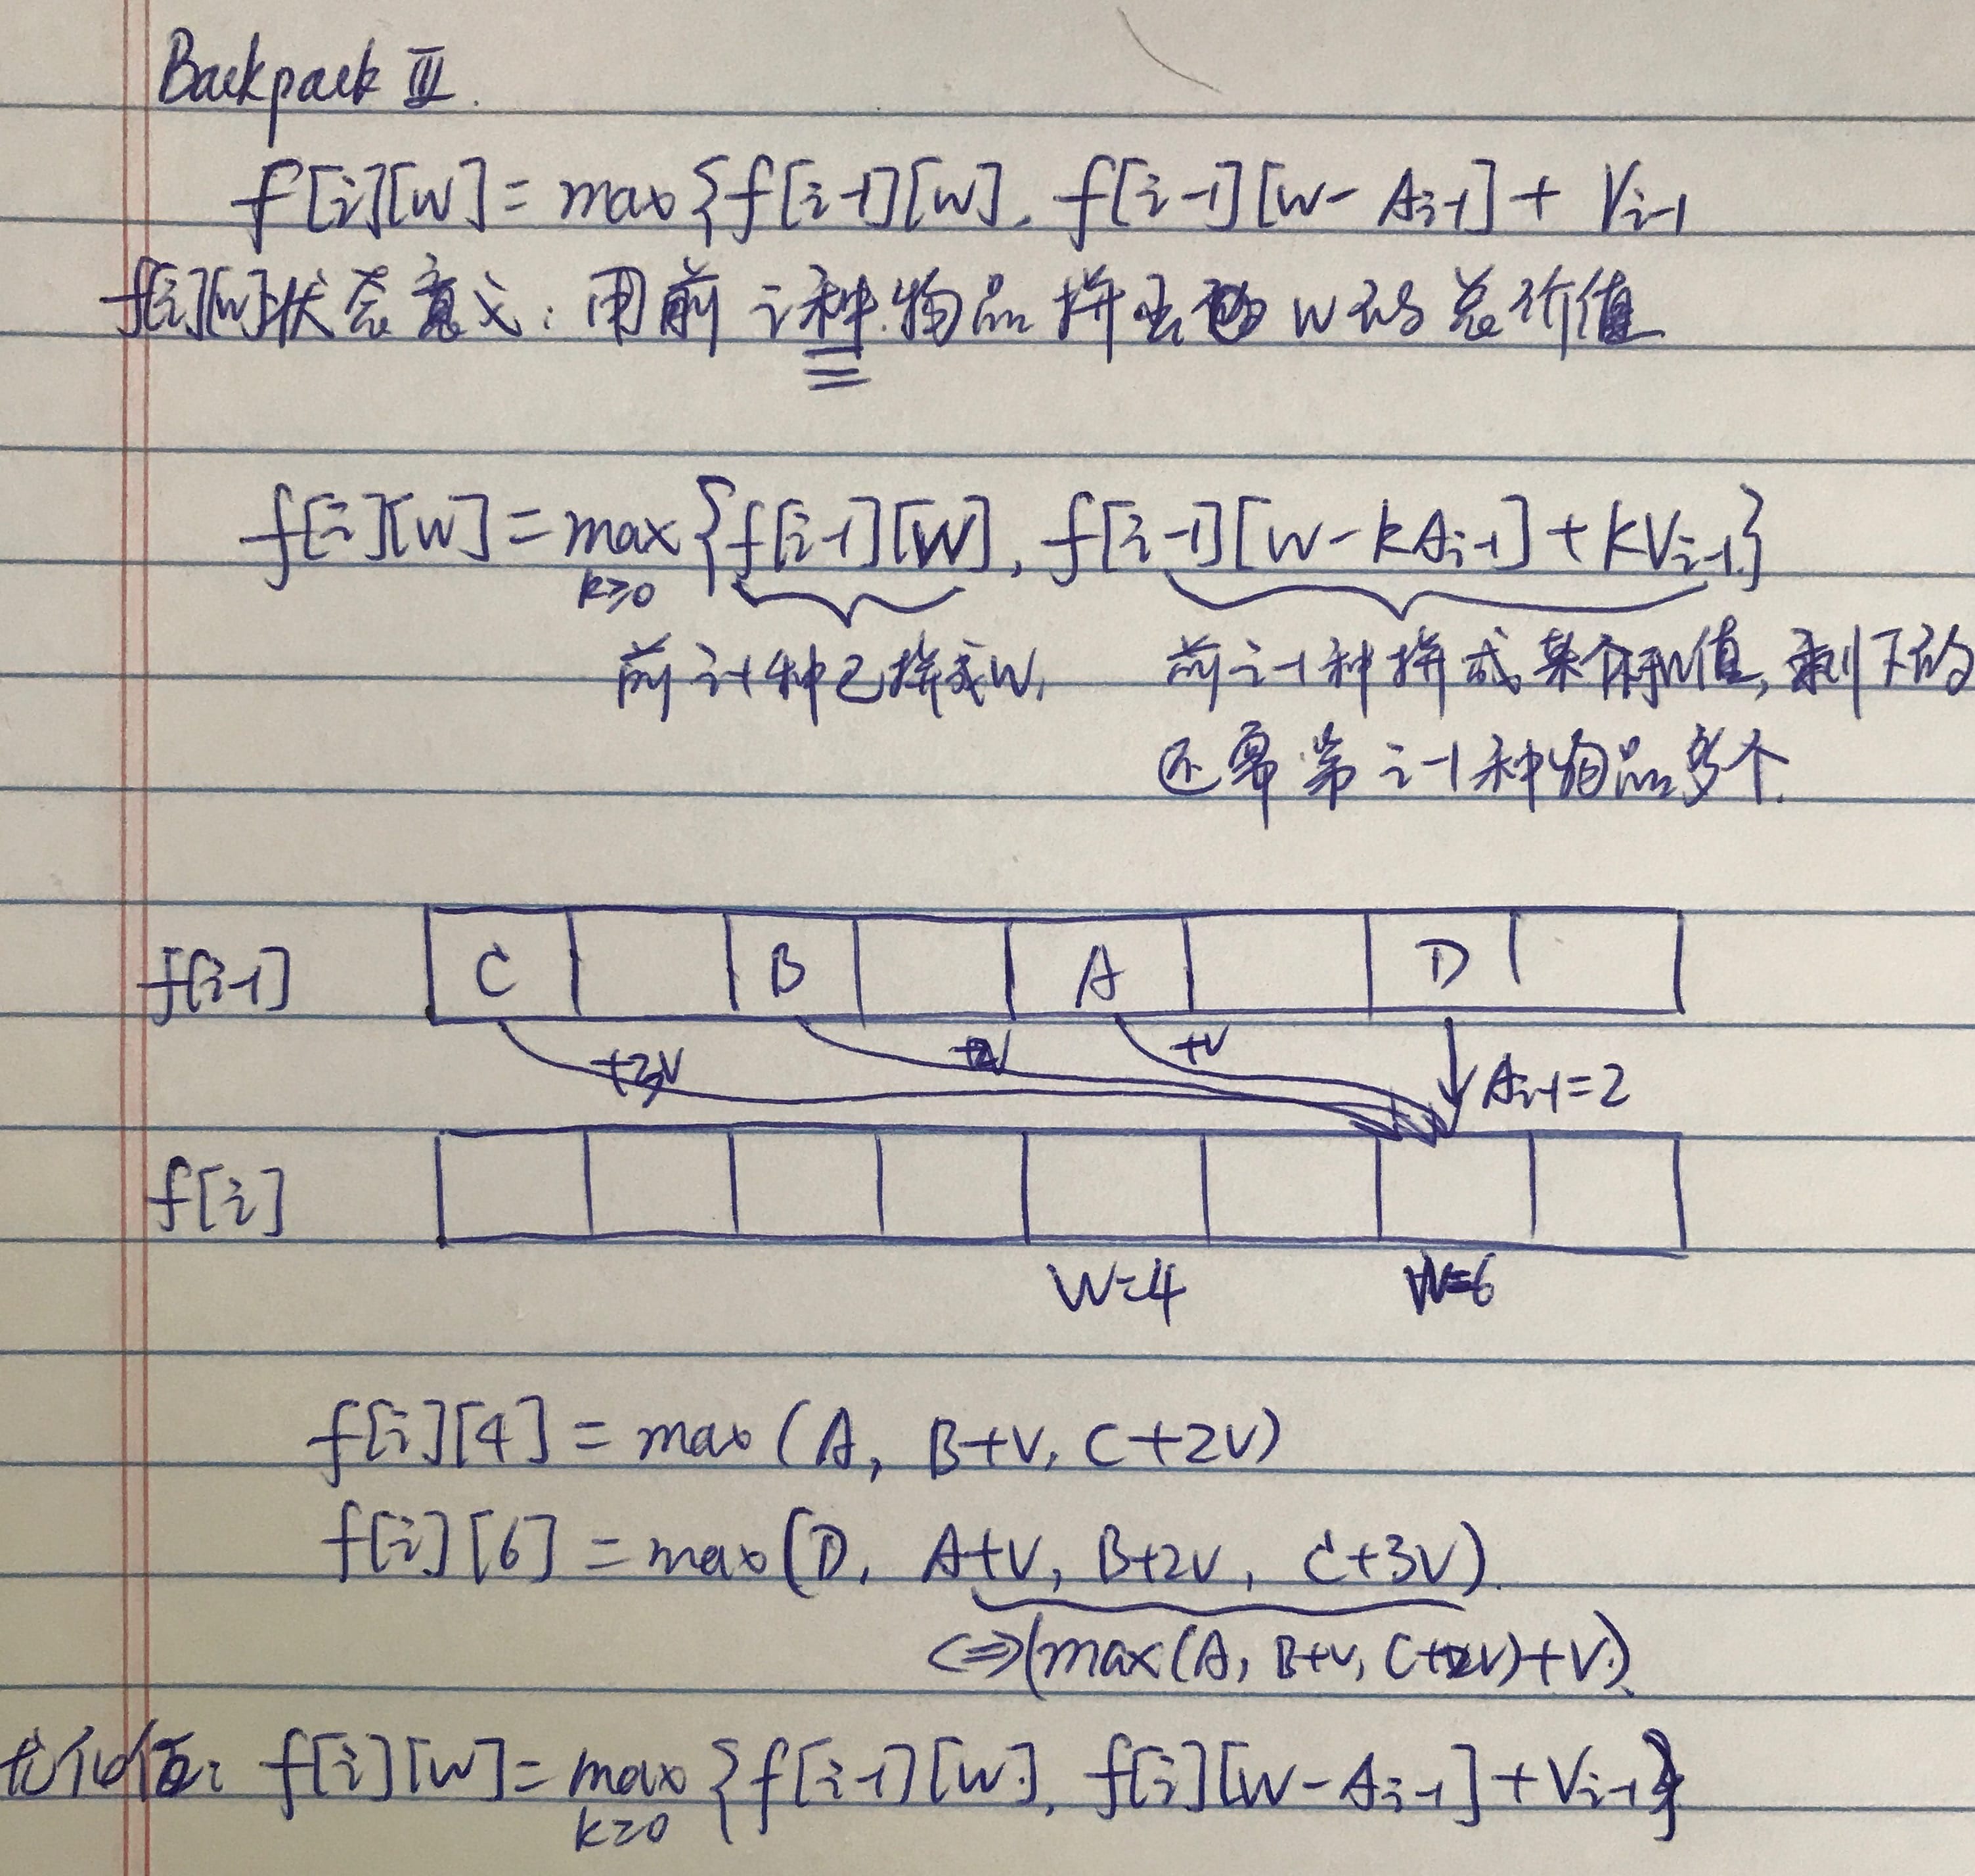 Backpack III.
f[i][w] = max{f[i-1][w], f[i-1][w-A_{i-1}] + V_{i-1}
f[i][w]状态意义: 用前i种物品拼出 w 的总价值
f[i][w] = max{f[i-1][W], f[i-1][w-kA_{i-1}] + kV_{i-1}}
k≥0
前i-1种已拼成W, 前i-1种拼成某个W值, 剩下的
还要第i-1种物品多个.
f[i-1] C B A D
+3V +2V +V A_{i-1}=2
f[i]
W=4 W=6
f[i][4] = max(A, B+V, C+2V)
f[i][6] = max(D, A+V, B+2V, C+3V)
<=>(max(A, B+V, C+2V)+V)
优化: f[i][w] = max{f[i-1][w], f[i][w-A_{i-1}] + V_{i-1}}
k≥0